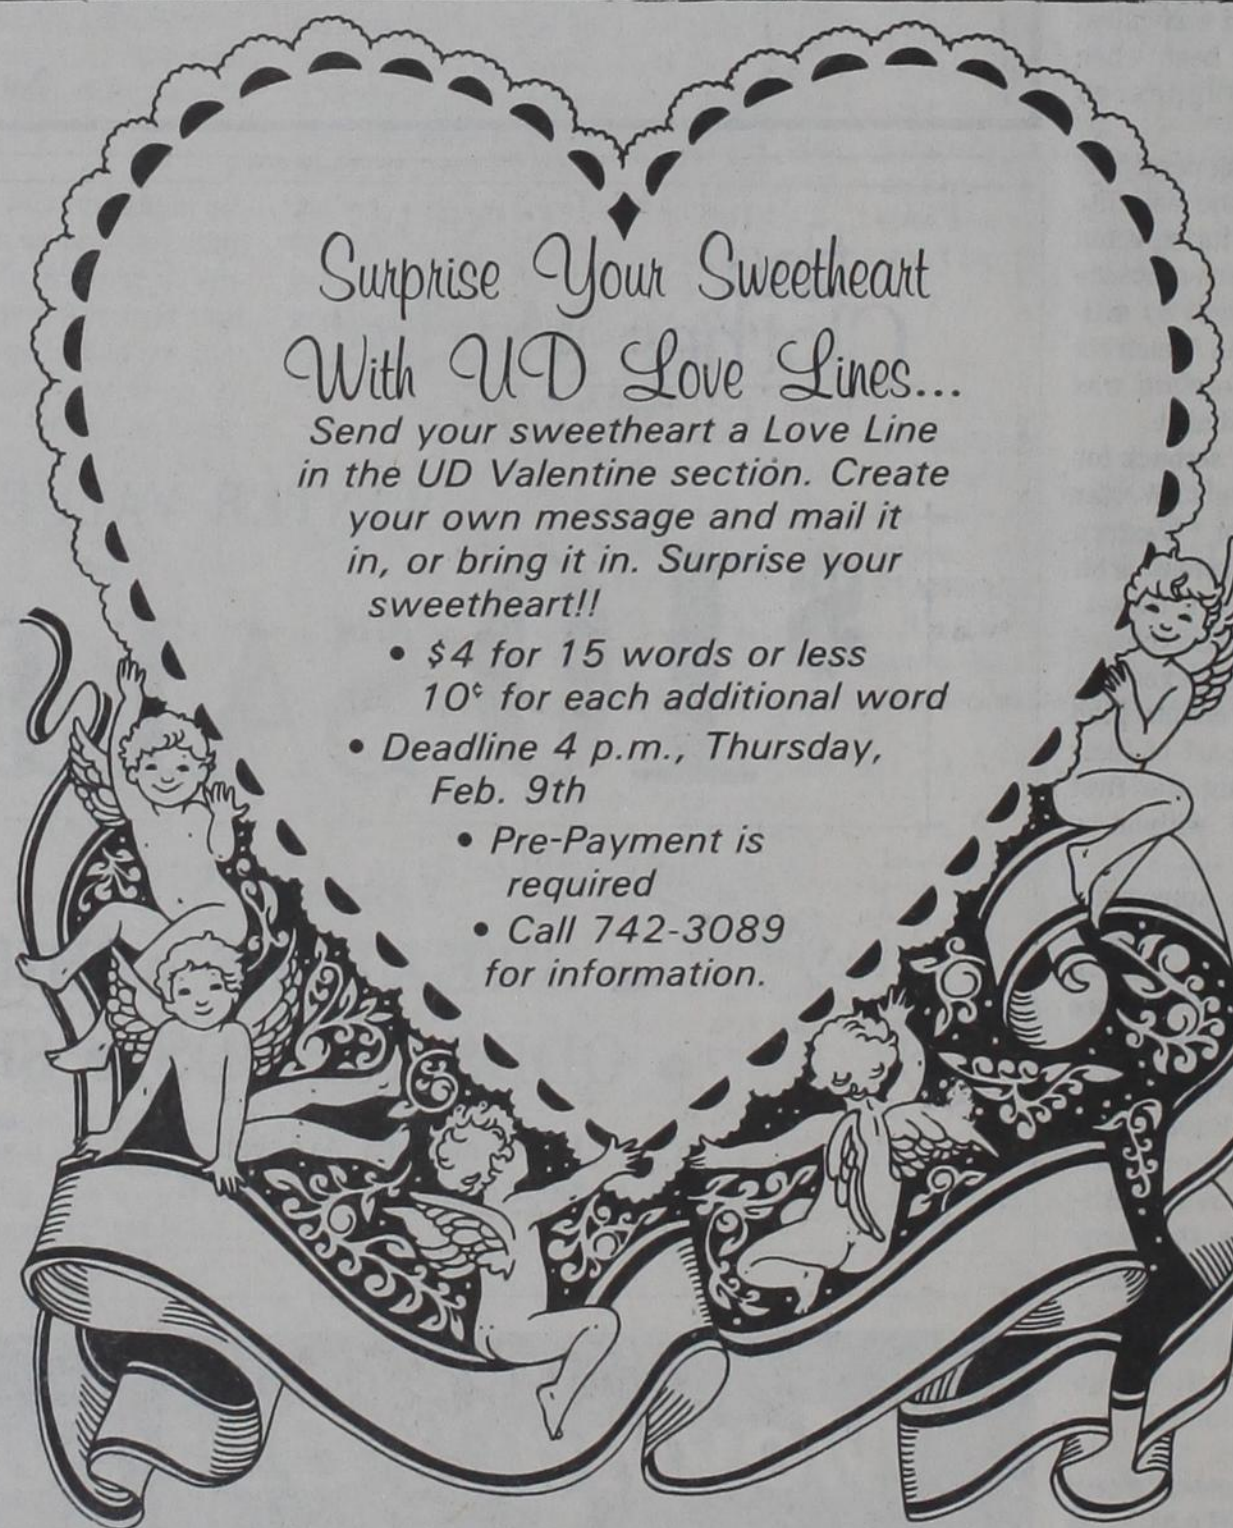 Surprise Your Sweetheart
With UD Love Lines...
Send your sweetheart a Love Line
in the UD Valentine section. Create
your own message and mail it
in, or bring it in. Surprise your
sweetheart!!
• $4 for 15 words or less
10¢ for each additional word
• Deadline 4 p.m., Thursday,
Feb. 9th
• Pre-Payment is
required
• Call 742-3089
for information.